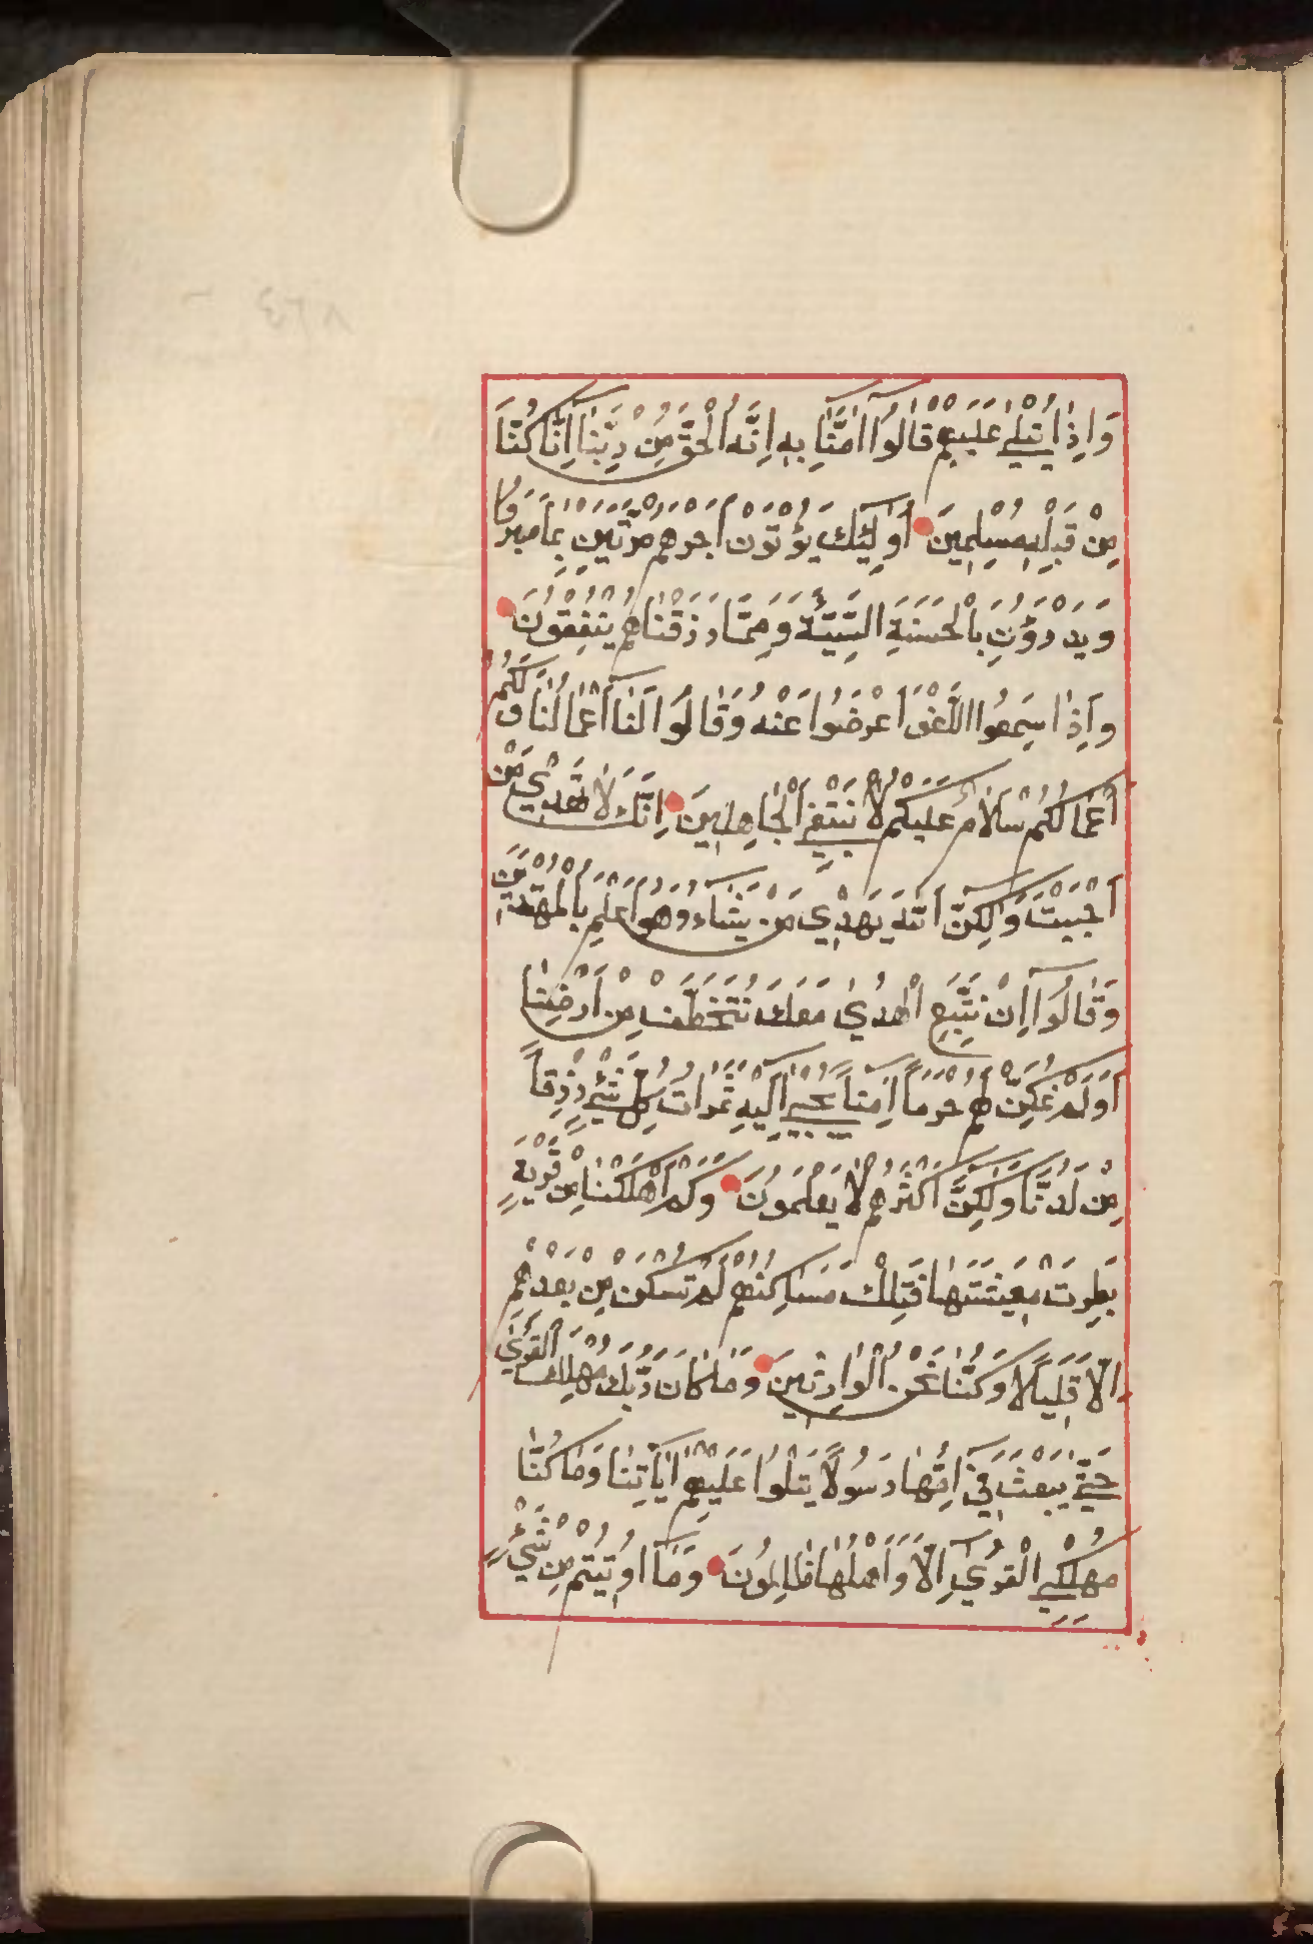 وَاِذَا يُتْلٰي عَلَيْهِمْ قَالُوٓا اٰمَنَّا بِهِ اِنَّهُ الْحَقُّ مِنْ رَبِّنَا اِنَّا كُنَّا
مِنْ قَبْلِهِ مُسْلِمِينَ اُولٰٓئِكَ يُؤْتَوْنَ اَجْرَهُمْ مَرَّتَيْنِ بِمَا صَبَرُوا
وَيَدْرَؤُنَ بِالْحَسَنَةِ السَّيِّئَةَ وَمِمَّا رَزَقْنَاهُمْ يُنْفِقُونَ
وَاِذَا سَمِعُوا اللَّغْوَ اَعْرَضُوا عَنْهُ وَقَالُوا لَنَآ اَعْمَالُنَا وَلَكُمْ
اَعْمَالُكُمْ سَلَامٌ عَلَيْكُمْ لَا نَبْتَغِي الْجَاهِلِينَ اِنَّكَ لَا تَهْدِي مَنْ
اَحْبَبْتَ وَلٰكِنَّ اللّٰهَ يَهْدِي مَنْ يَشَآءُ وَهُوَ اَعْلَمُ بِالْمُهْتَدِينَ
وَقَالُوٓا اِنْ نَتَّبِعِ الْهُدٰي مَعَكَ نُتَخَطَّفْ مِنْ اَرْضِنَا
اَوَلَمْ نُمَكِّنْ لَهُمْ حَرَمًا اٰمِنًا يُجْبٰٓي اِلَيْهِ ثَمَرَاتُ كُلِّ شَيْءٍ رِزْقًا
مِنْ لَدُنَّا وَلٰكِنَّ اَكْثَرَهُمْ لَا يَعْلَمُونَ وَكَمْ اَهْلَكْنَا مِنْ قَرْيَةٍ
بَطِرَتْ مَعِيشَتَهَا فَتِلْكَ مَسَاكِنُهُمْ لَمْ تُسْكَنْ مِنْ بَعْدِهِمْ
اِلَّا قَلِيلًا وَكُنَّا نَحْنُ الْوَارِثِينَ وَمَا كَانَ رَبُّكَ مُهْلِكَ الْقُرٰي
حَتّٰي يَبْعَثَ فِٓي اُمِّهَا رَسُولًا يَتْلُوا عَلَيْهِمْ اٰيَاتِنَا وَمَا كُنَّا
مُهْلِكِي الْقُرٰٓي اِلَّا وَاَهْلُهَا ظَالِمُونَ وَمَآ اُوتِيتُمْ مِنْ شَيْءٍ